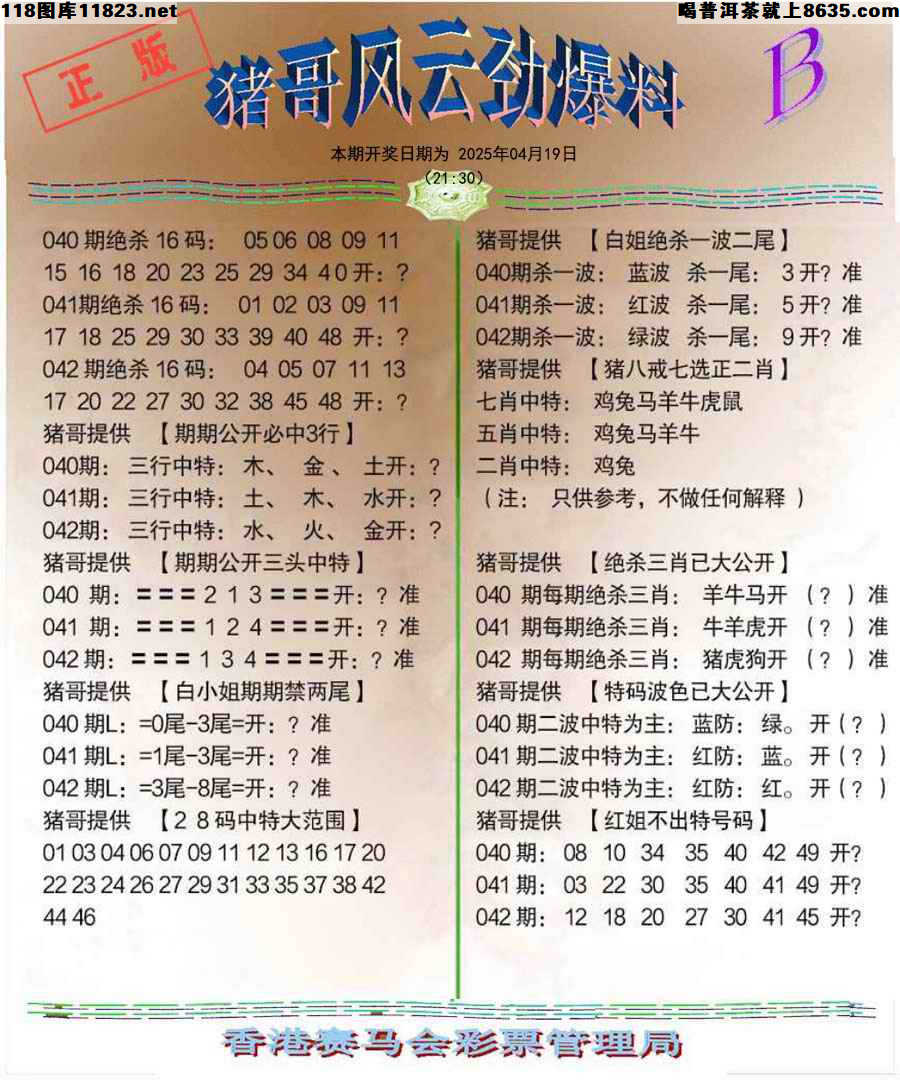 118图库11823.net
喝普洱茶就上8635.com
正版
猪哥风云劲爆料
B
本期开奖日期为 2025年04月19日
(21:30)
040期绝杀16码： 05 06 08 09 11
15 16 18 20 23 25 29 34 40开：?
041期绝杀16码： 01 02 03 09 11
17 18 25 29 30 33 39 40 48 开：?
042期绝杀16码： 04 05 07 11 13
17 20 22 27 30 32 38 45 48 开：?
猪哥提供 【期期公开必中3行】
040期：三行中特：木、 金、 土开：?
041期：三行中特：土、 木、 水开：?
042期：三行中特：水、 火、 金开：?
猪哥提供 【期期公开三头中特】
040 期：===213===开：? 准
041 期：===124===开：? 准
042期：===134===开：? 准
猪哥提供 【白小姐期期禁两尾】
040期L：=0尾-3尾=开：? 准
041期L：=1尾-3尾=开：? 准
042期L：=3尾-8尾=开：? 准
猪哥提供 【28码中特大范围】
01 03 04 06 07 09 11 12 13 16 17 20
22 23 24 26 27 29 31 33 35 37 38 42
44 46
猪哥提供 【白姐绝杀一波二尾】
040期杀一波： 蓝波 杀一尾： 3开? 准
041期杀一波： 红波 杀一尾： 5开? 准
042期杀一波： 绿波 杀一尾： 9开? 准
猪哥提供 【猪八戒七选正二肖】
七肖中特： 鸡兔马羊牛虎鼠
五肖中特： 鸡兔马羊牛
二肖中特： 鸡兔
（注： 只供参考，不做任何解释）
猪哥提供 【绝杀三肖已大公开】
040 期每期绝杀三肖： 羊牛马开 （?）准
041 期每期绝杀三肖： 牛羊虎开 （?）准
042 期每期绝杀三肖： 猪虎狗开 （?）准
猪哥提供 【特码波色已大公开】
040期二波中特为主： 蓝防： 绿。 开（?）
041期二波中特为主： 红防： 蓝。 开（?）
042期二波中特为主： 红防： 红。 开（?）
猪哥提供 【红姐不出特号码】
040期： 08 10 34 35 40 42 49 开?
041期： 03 22 30 35 40 41 49 开?
042期： 12 18 20 27 30 41 45 开?
香港赛马会彩票管理局